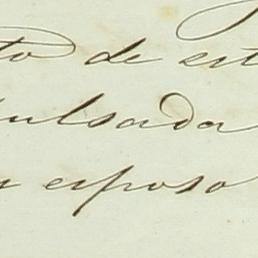 to de est
ulsada
esposo